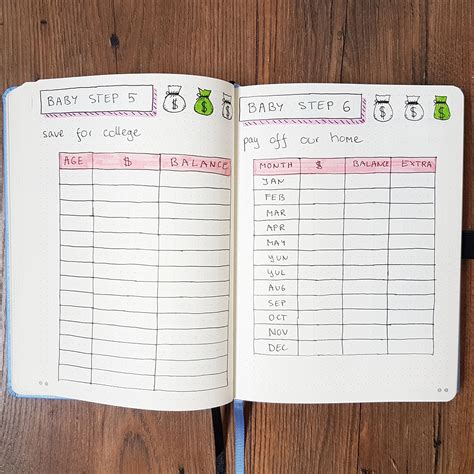 BABY STEP 5
$ $ $
save for college
AGE $ BALANCE
BABY STEP 6
$ $ $
pay off our home
MONTH $ BALANCE EXTRA
JAN
FEB
MAR
APR
MAY
YUN
YUL
AUG
SEP
OCT
NOV
DEC